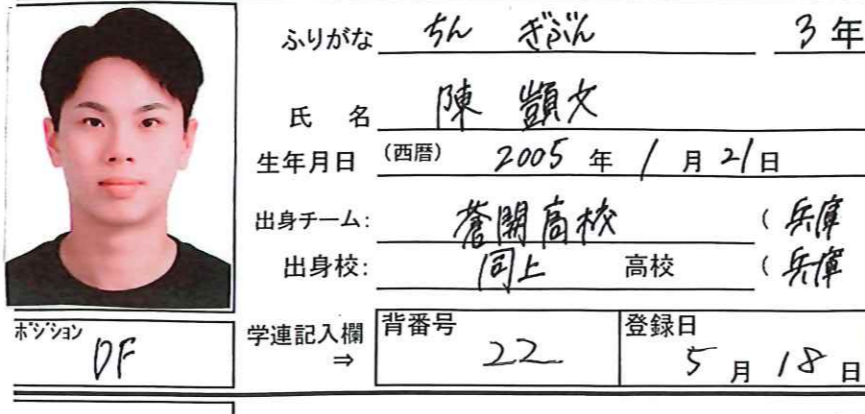 ふりがな ちん ぎぶん 3年
氏 名 陳 顗文
生年月日 (西暦) 2005 年 1 月 21 日
出身チーム: 蒼開高校 (兵庫
出身校: 同上 高校 (兵庫
ポジション DF
学連記入欄 ⇒
背番号 22
登録日 5 月 18 日